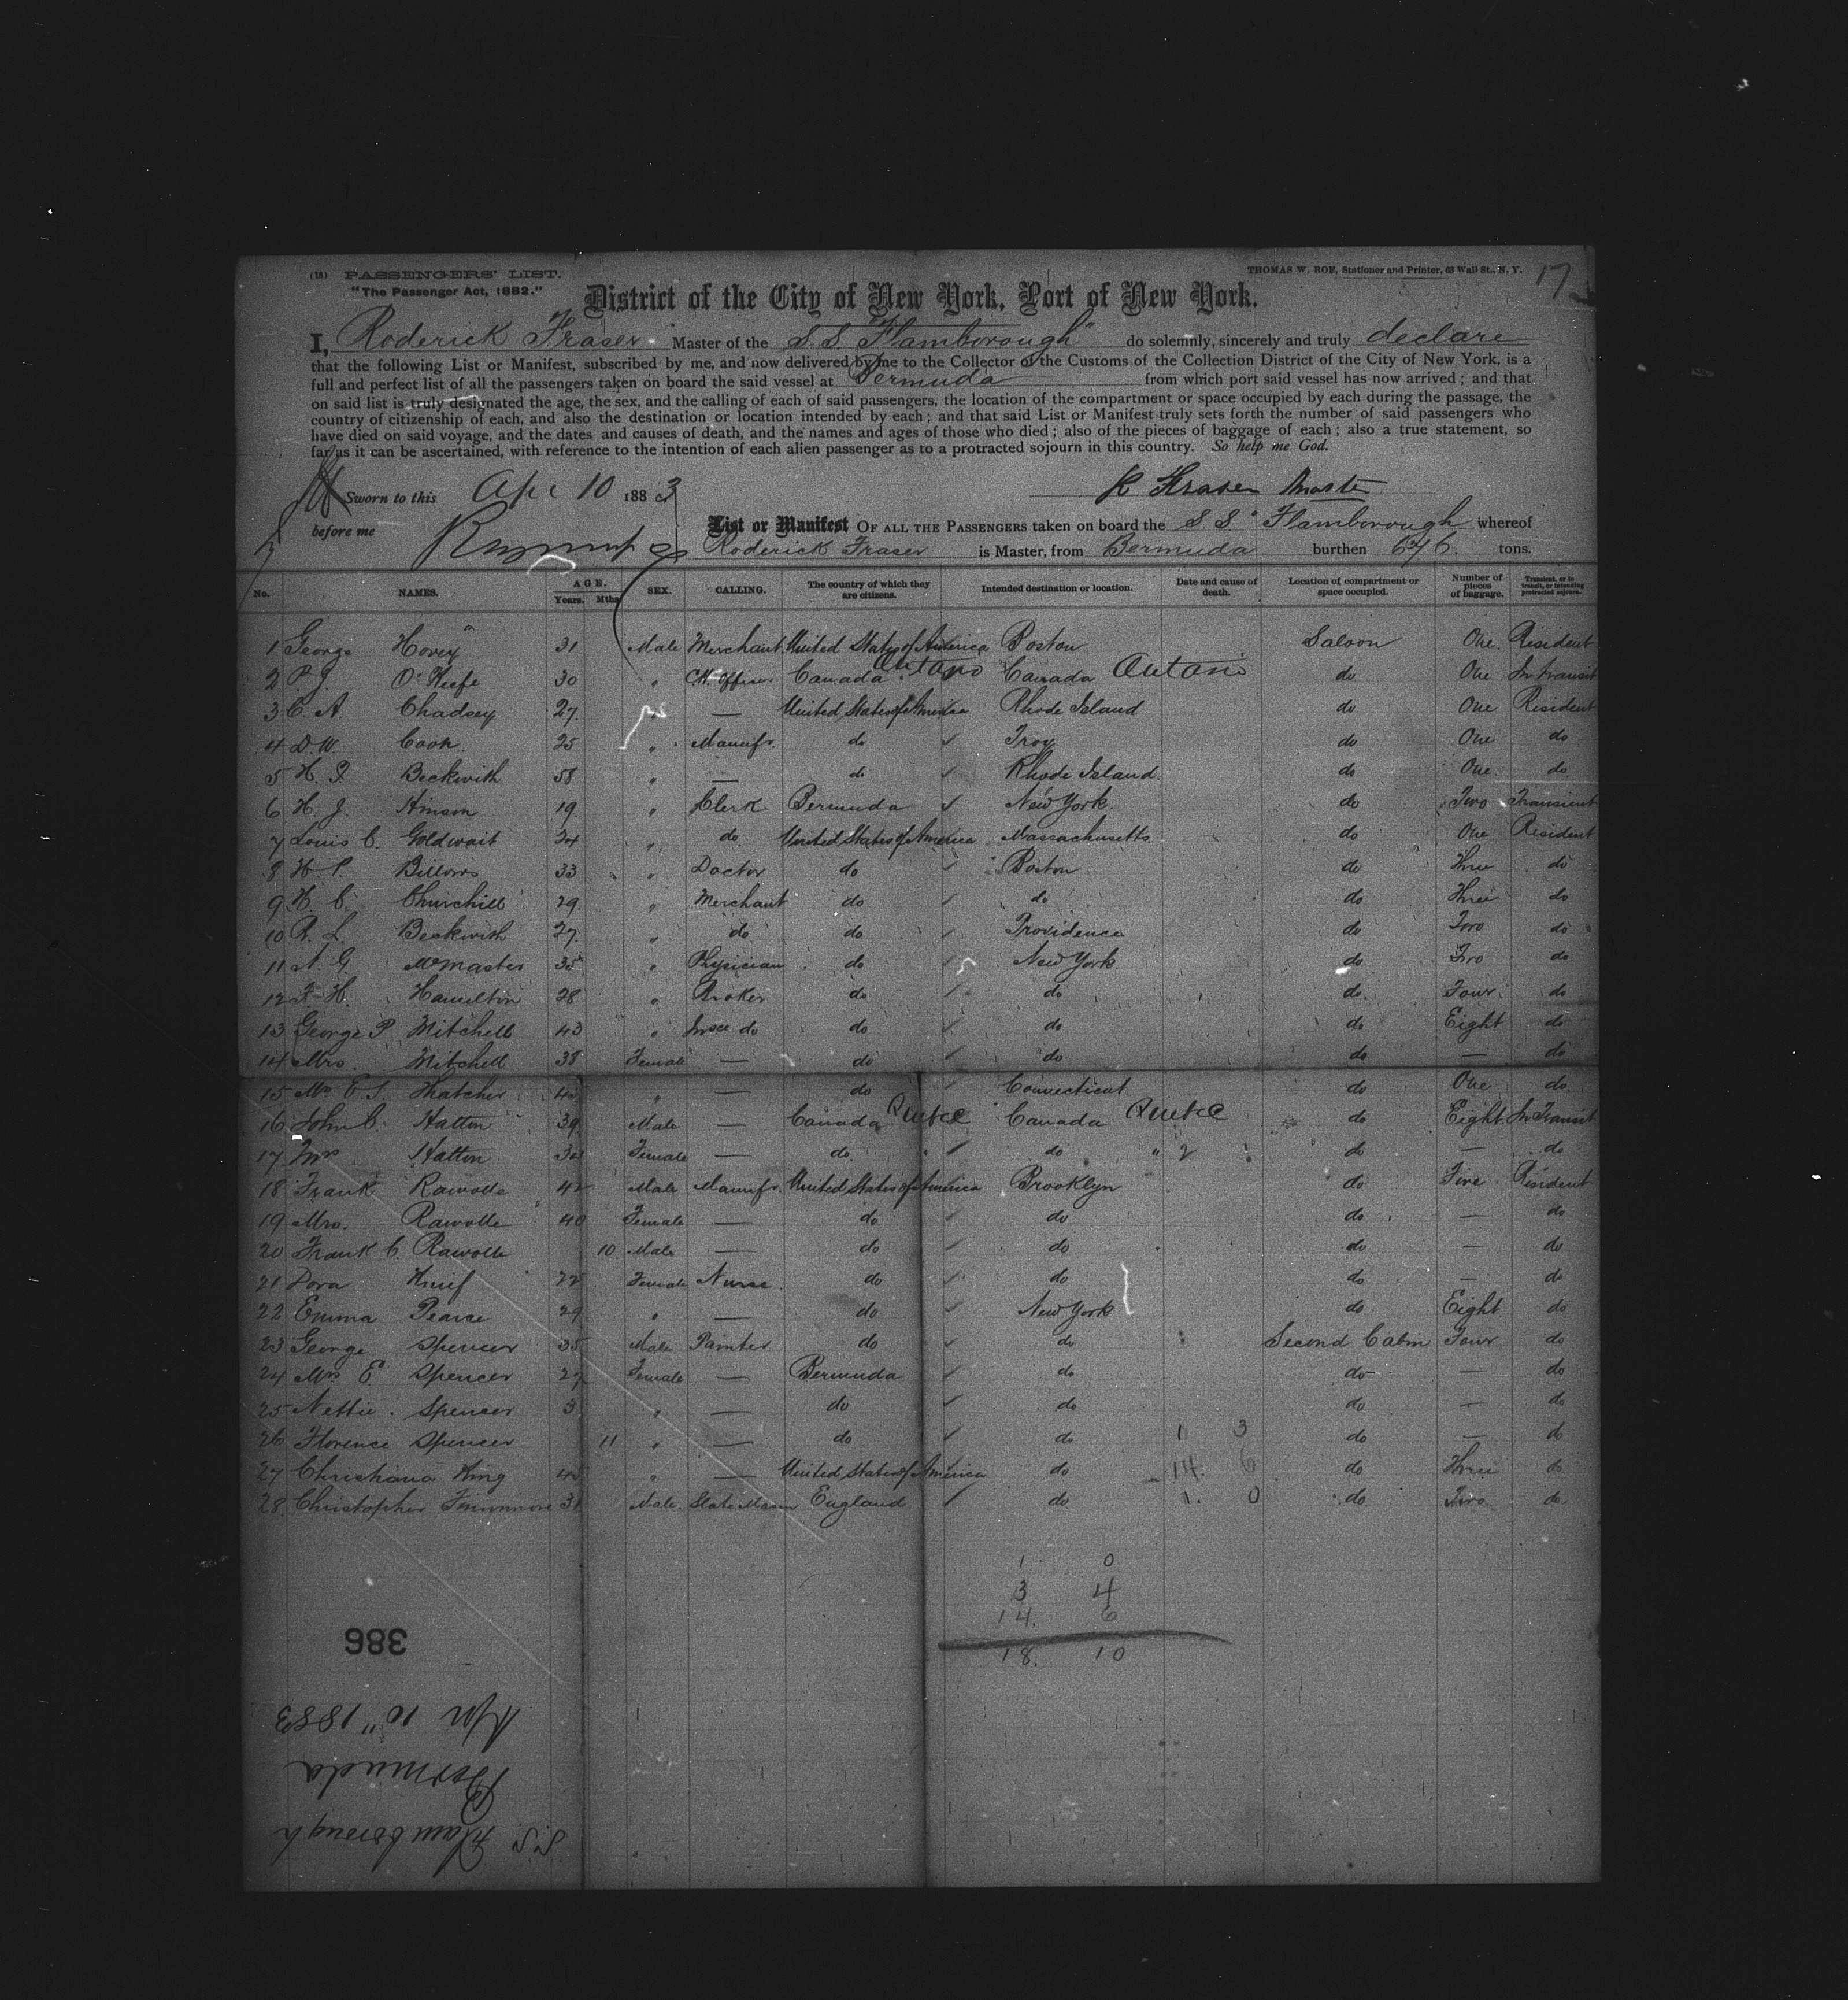 (18) PASSENGERS' LIST.
"The Passenger Act, 1882."
THOMAS W. ROE, Stationer and Printer, 63 Wall St., N. Y. 17
District of the City of New York, Port of New York.
I, Roderick Fraser Master of the S.S. "Flamborough" do solemnly, sincerely and truly declare
that the following List or Manifest, subscribed by me, and now delivered by me to the Collector of the Customs of the Collection District of the City of New York, is a
full and perfect list of all the passengers taken on board the said vessel at Bermuda from which port said vessel has now arrived; and that
on said list is truly designated the age, the sex, and the calling of each of said passengers, the location of the compartment or space occupied by each during the passage, the
country of citizenship of each, and also the destination or location intended by each; and that said List or Manifest truly sets forth the number of said passengers who
have died on said voyage, and the dates and causes of death, and the names and ages of those who died; also of the pieces of baggage of each; also a true statement, so
far as it can be ascertained, with reference to the intention of each alien passenger as to a protracted sojourn in this country. So help me God.
Sworn to this Apr 10 1883 R Fraser Master
before me
List or Manifest OF ALL THE PASSENGERS taken on board the S.S. "Flamborough whereof
Roderick Fraser is Master, from Bermuda burthen 646. tons.
No. NAMES. AGE. Years. Mths SEX. CALLING. The country of which they are citizens. Intended destination or location. Date and cause of death. Location of compartment or space occupied. Number of pieces of baggage. Transient, or in transit, or intending protracted sojourn.
1 George Hovey 31 Male Merchant United States of America Boston Saloon One Resident
2 P. J. O'Keefe 30 " Officer Canada Ontario Canada Ontario do One In transit
3 C. A. Chadsey 27 " — United States of America Rhode Island do One Resident
4 D. W. Cook 25 " Manufr. do Troy do One do
5 H. I. Beckwith 58 " — do Rhode Island do One do
6 H. J. Hinson 19 " Clerk Bermuda New York do Two Transient
7 Louis C. Goldwait 24 " do United States of America Massachusetts do One Resident
8 H. P. Bellows 33 " Doctor do Boston do Three do
9 H. C. Churchill 29 " Merchant do do do Three do
10 R. L. Beckwith 27 " do do Providence do Two do
11 A. G. McMaster 35 " Physician do New York do Two do
12 F. H. Hamilton 28 " Broker do do do Four do
13 George P. Mitchell 43 " Insce do do do do Eight do
14 Mrs. Mitchell 38 Female — do do do — do
15 Mrs E. S. Thatcher " — do Connecticut do One do
16 John C. Hatton 39 Male — Canada Quebec Canada Quebec do Eight In Transit
17 Mrs Hatton Female — do do " 2 do — do
18 Frank Rawolle 42 Male Manufr. United States of America Brooklyn do Five Resident
19 Mrs. Rawolle 40 Female — do do do — do
20 Frank C. Rawolle 10 Male — do do do — do
21 Dora Knief 22 Female Nurse do do do — do
22 Emma Pearce 29 " — do New York do Eight do
23 George Spencer 35 Male Painter do do Second Cabin Four do
24 Mrs E. Spencer 27 Female — Bermuda do do — do
25 Nettie Spencer 3 " — do do do — do
26 Florence Spencer 11 " — do do 1 3 do — do
27 Christiana King " — United States of America do 14. 6 do Three do
28 Christopher 31 Male England do 1. 0 do Two do
1 0
3 4
14. 6
18. 10
386
Apr 10" 1883
Bermuda
S.S. Flamborough